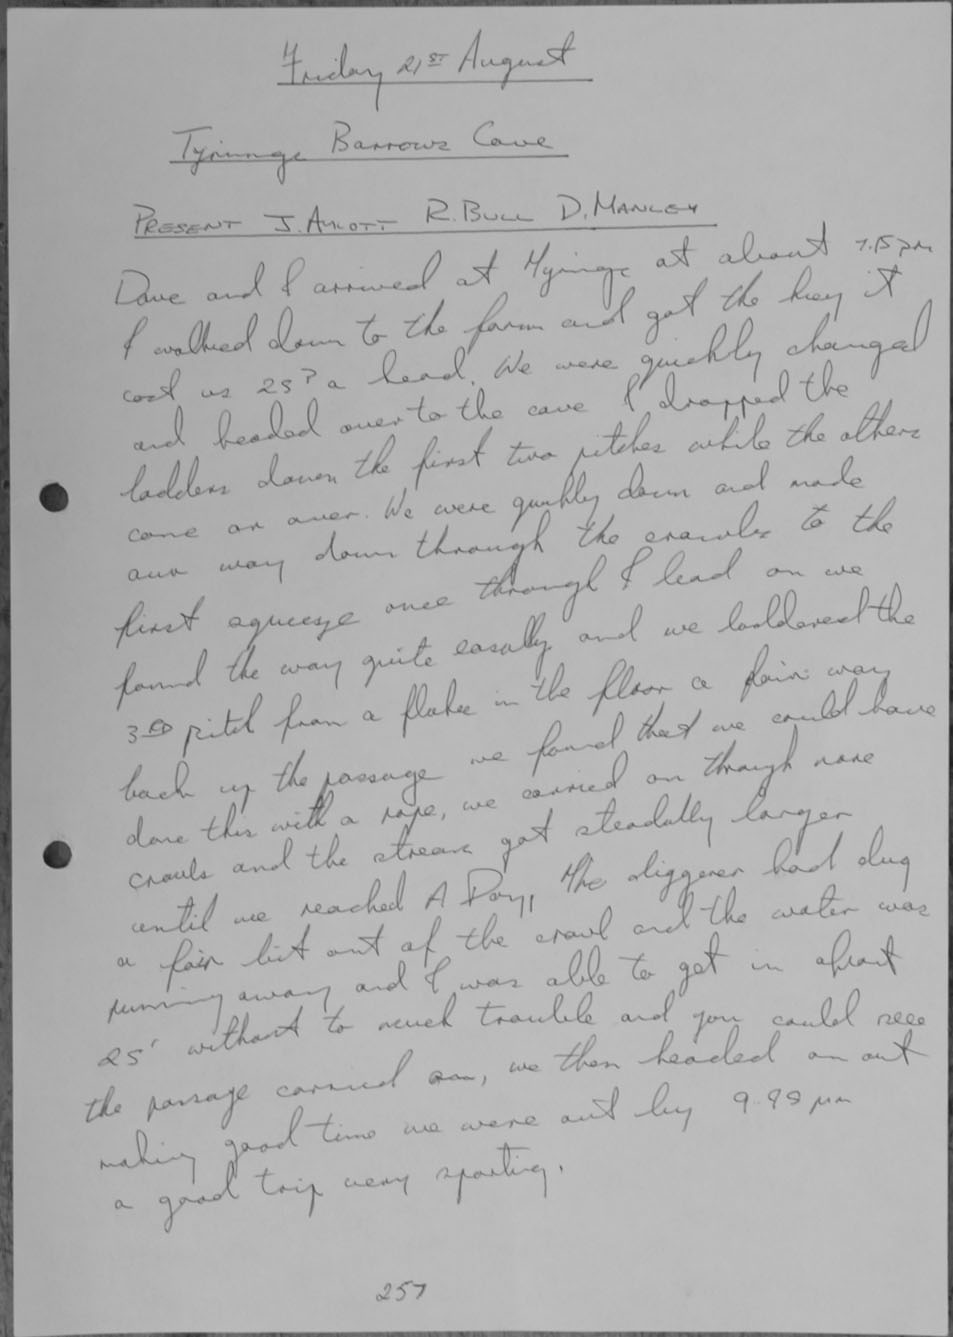 Friday 21ST August
Tyninge Barrows Cave
PRESENT J. R. BULL D. MANLEY
Dave and I arrived at Tyninge at about 7.15 pm
I walked down to the farm and got the key it
cost us 25P a head. We were quickly changed
and headed over to the cave I dropped the
ladders down the first two pitches while the others
came on over. We were quickly down and made
our way down through the crawls to the
first squeeze once through I lead on we
found the way quite easally and we laddered the
3RD pitch from a flake in the floor a fair way
back up the passage we found that we could have
done this with a rope, we carried on through more
crawls and the stream got steadally larger
until we reached A Day, the diggers had dug
a fair bit out of the crawl and the water was
running away and I was able to get in about
25' without to much trouble and you could see
the passage carried on, we then headed on out
making good time we were out by pm
a good trip very sporting.
257